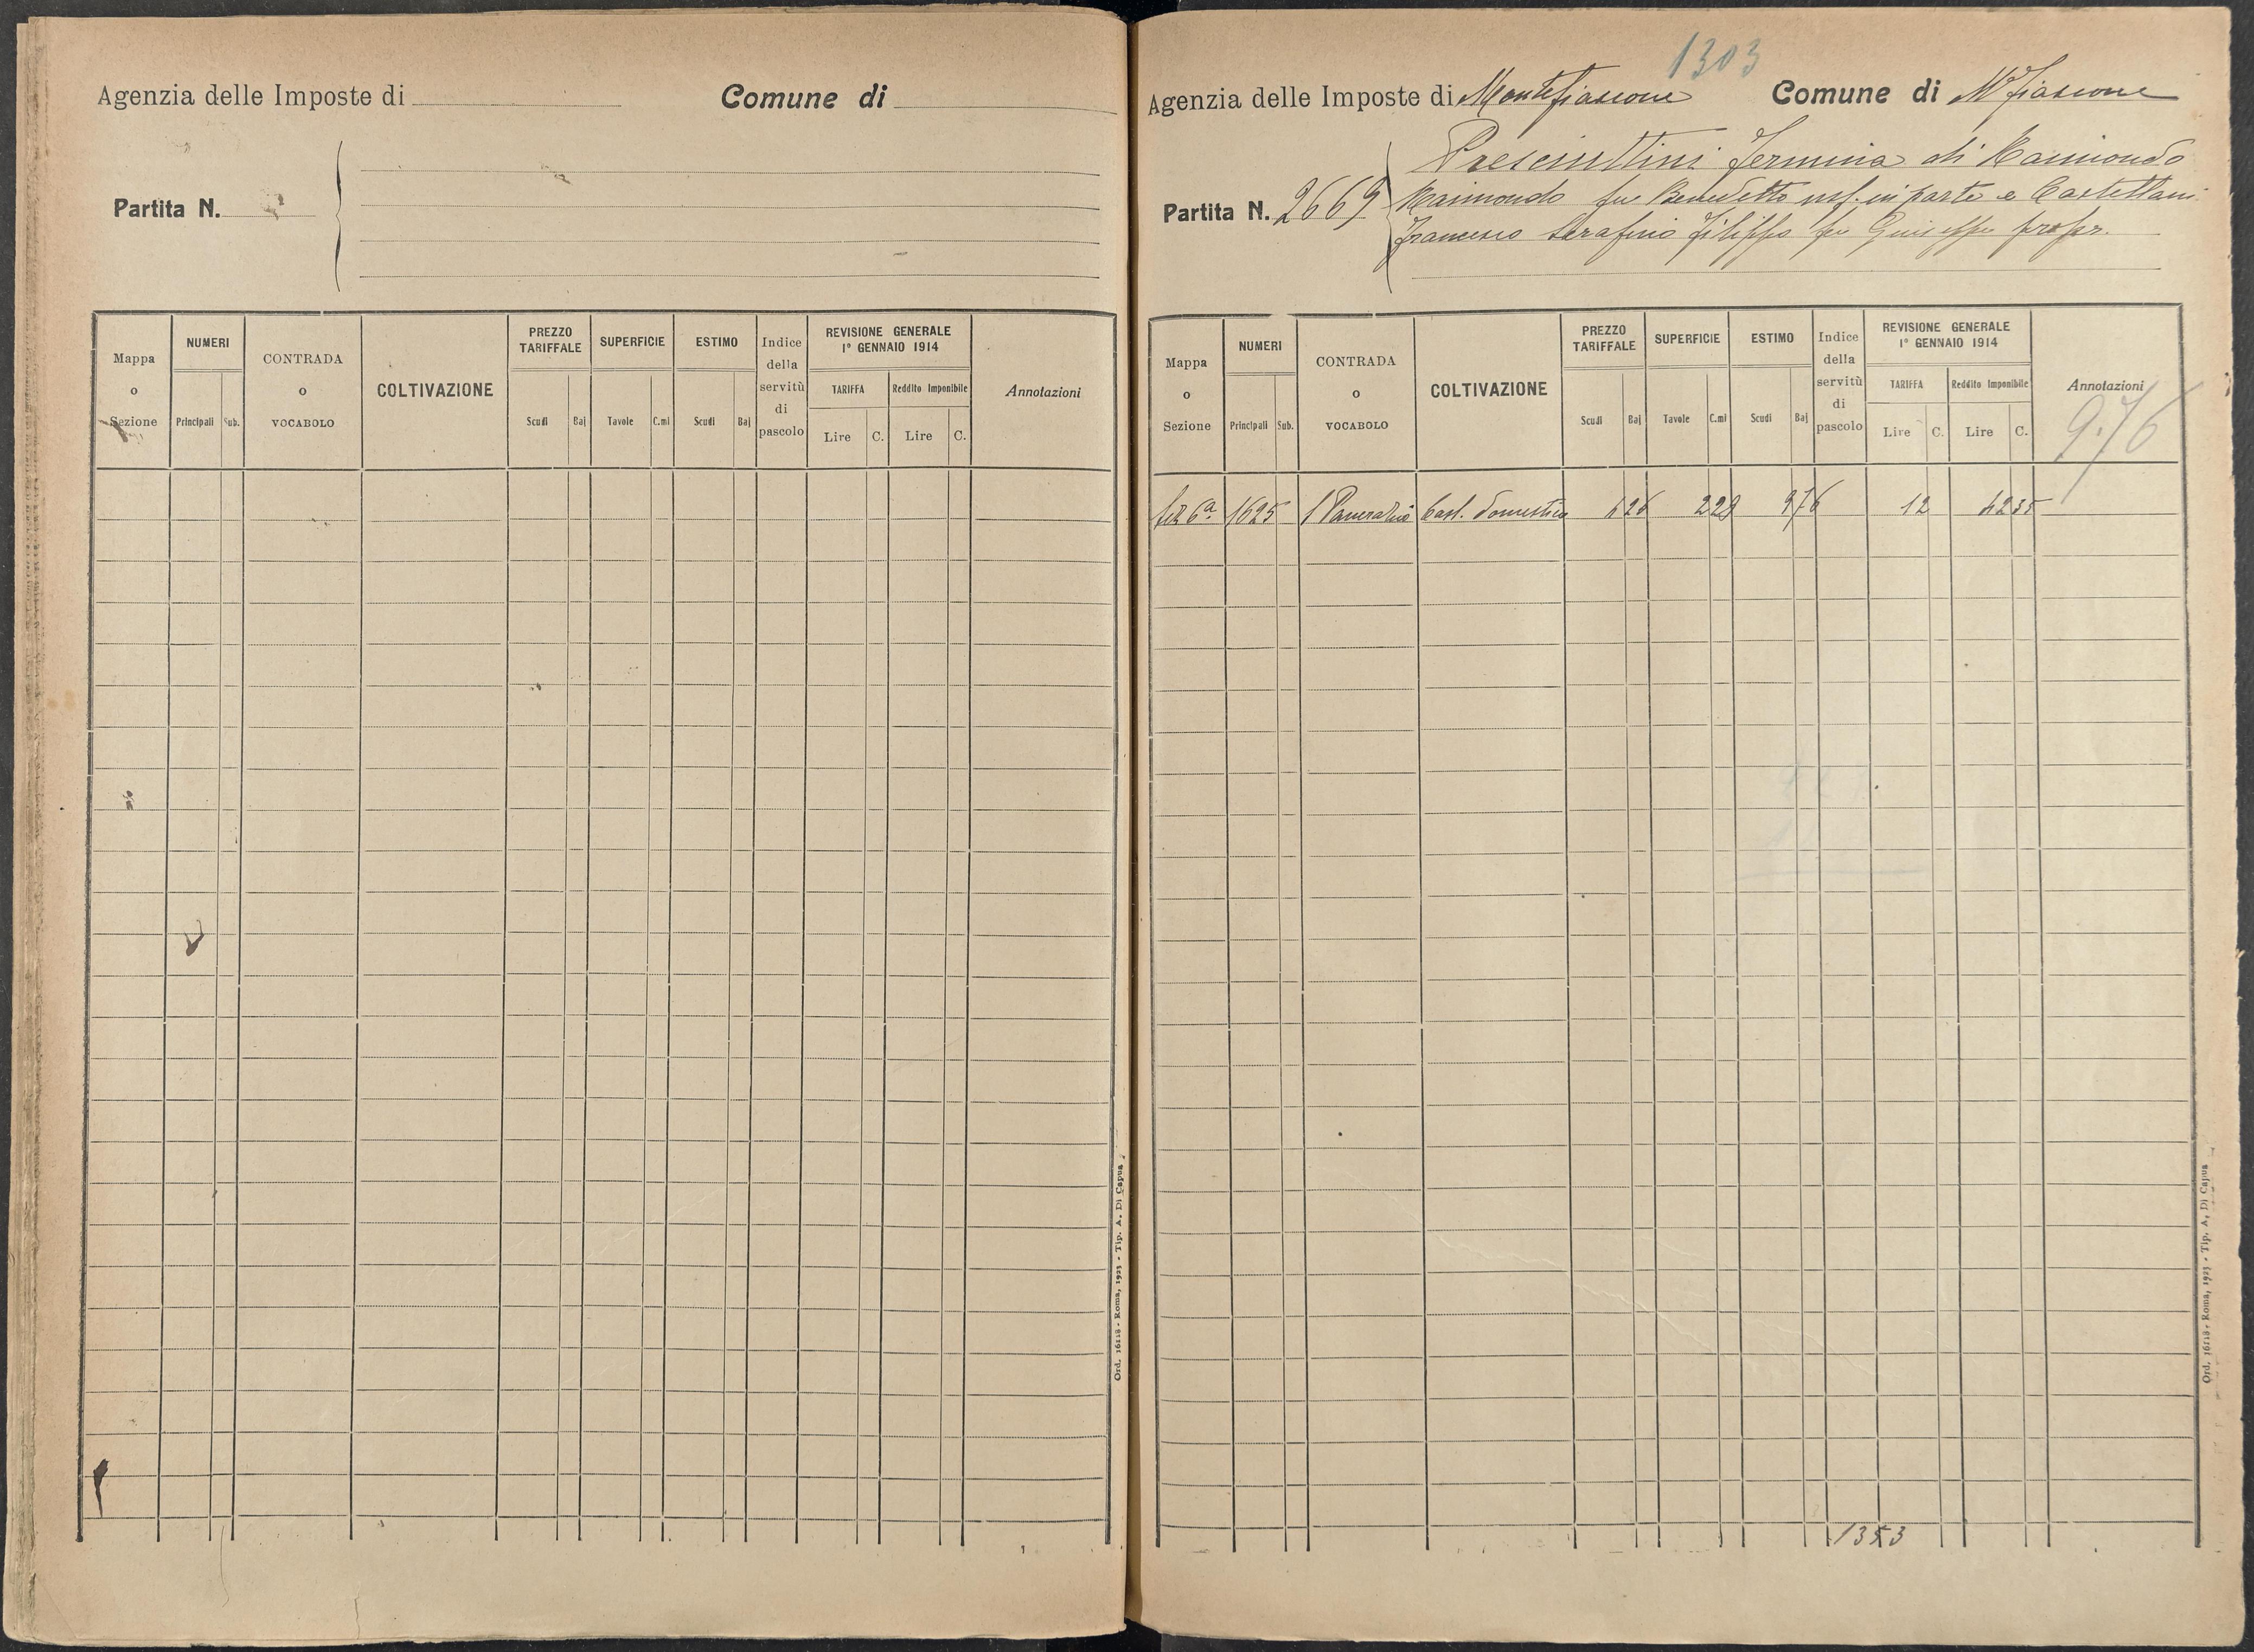 Agenzia delle Imposte di
Comune di
Partita N.
Mappa o Sezione
NUMERI
Principali Sub.
CONTRADA o VOCABOLO
COLTIVAZIONE
PREZZO TARIFFALE
Scudi Baj
SUPERFICIE
Tavole C.mi
ESTIMO
Scudi Baj
Indice della servitù di pascolo
REVISIONE GENERALE
1° GENNAIO 1914
TARIFFA Reddito Imponibile
Lire C. Lire C.
Annotazioni
Ord. 16118 - Roma, 1923 - Tip. A. Di Capua
1303
Agenzia delle Imposte di Montefiascone Comune di M Fiascone
Partita N. 2669
Presciuttini Fermina di Raimondo
Raimondo fu Benedetto usf. in parte e Castellani
Francesco Serafino Filippo fu Giuseppe propr.
Mappa o Sezione
NUMERI
Principali Sub.
CONTRADA o VOCABOLO
COLTIVAZIONE
PREZZO TARIFFALE
Scudi Baj
SUPERFICIE
Tavole C.mi
ESTIMO
Scudi Baj
Indice della servitù di pascolo
REVISIONE GENERALE
1° GENNAIO 1914
TARIFFA Reddito Imponibile
Lire C. Lire C.
Annotazioni
9.76
Sez 6ª 1625 S Pancrazio Cast. domestico 426 229 976 12
1353
Ord. 16118 - Roma, 1923 - Tip. A. Di Capua